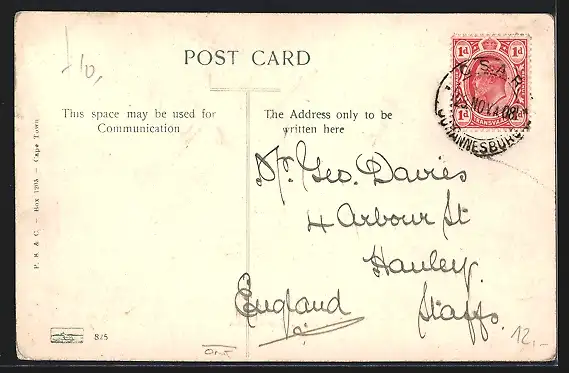 10,
POST CARD
1d 1d
C.S.A.R.
NOV 08
1d TRANSVAAL 1d
JOHANNESBURG
This space may be used for
Communication
The Address only to be
written here
Mr. Geo. Davies
4 Arbour St
Hanley.
England Staffs.
P. B. & C. – Box 1205 – Cape Town
825
12,-